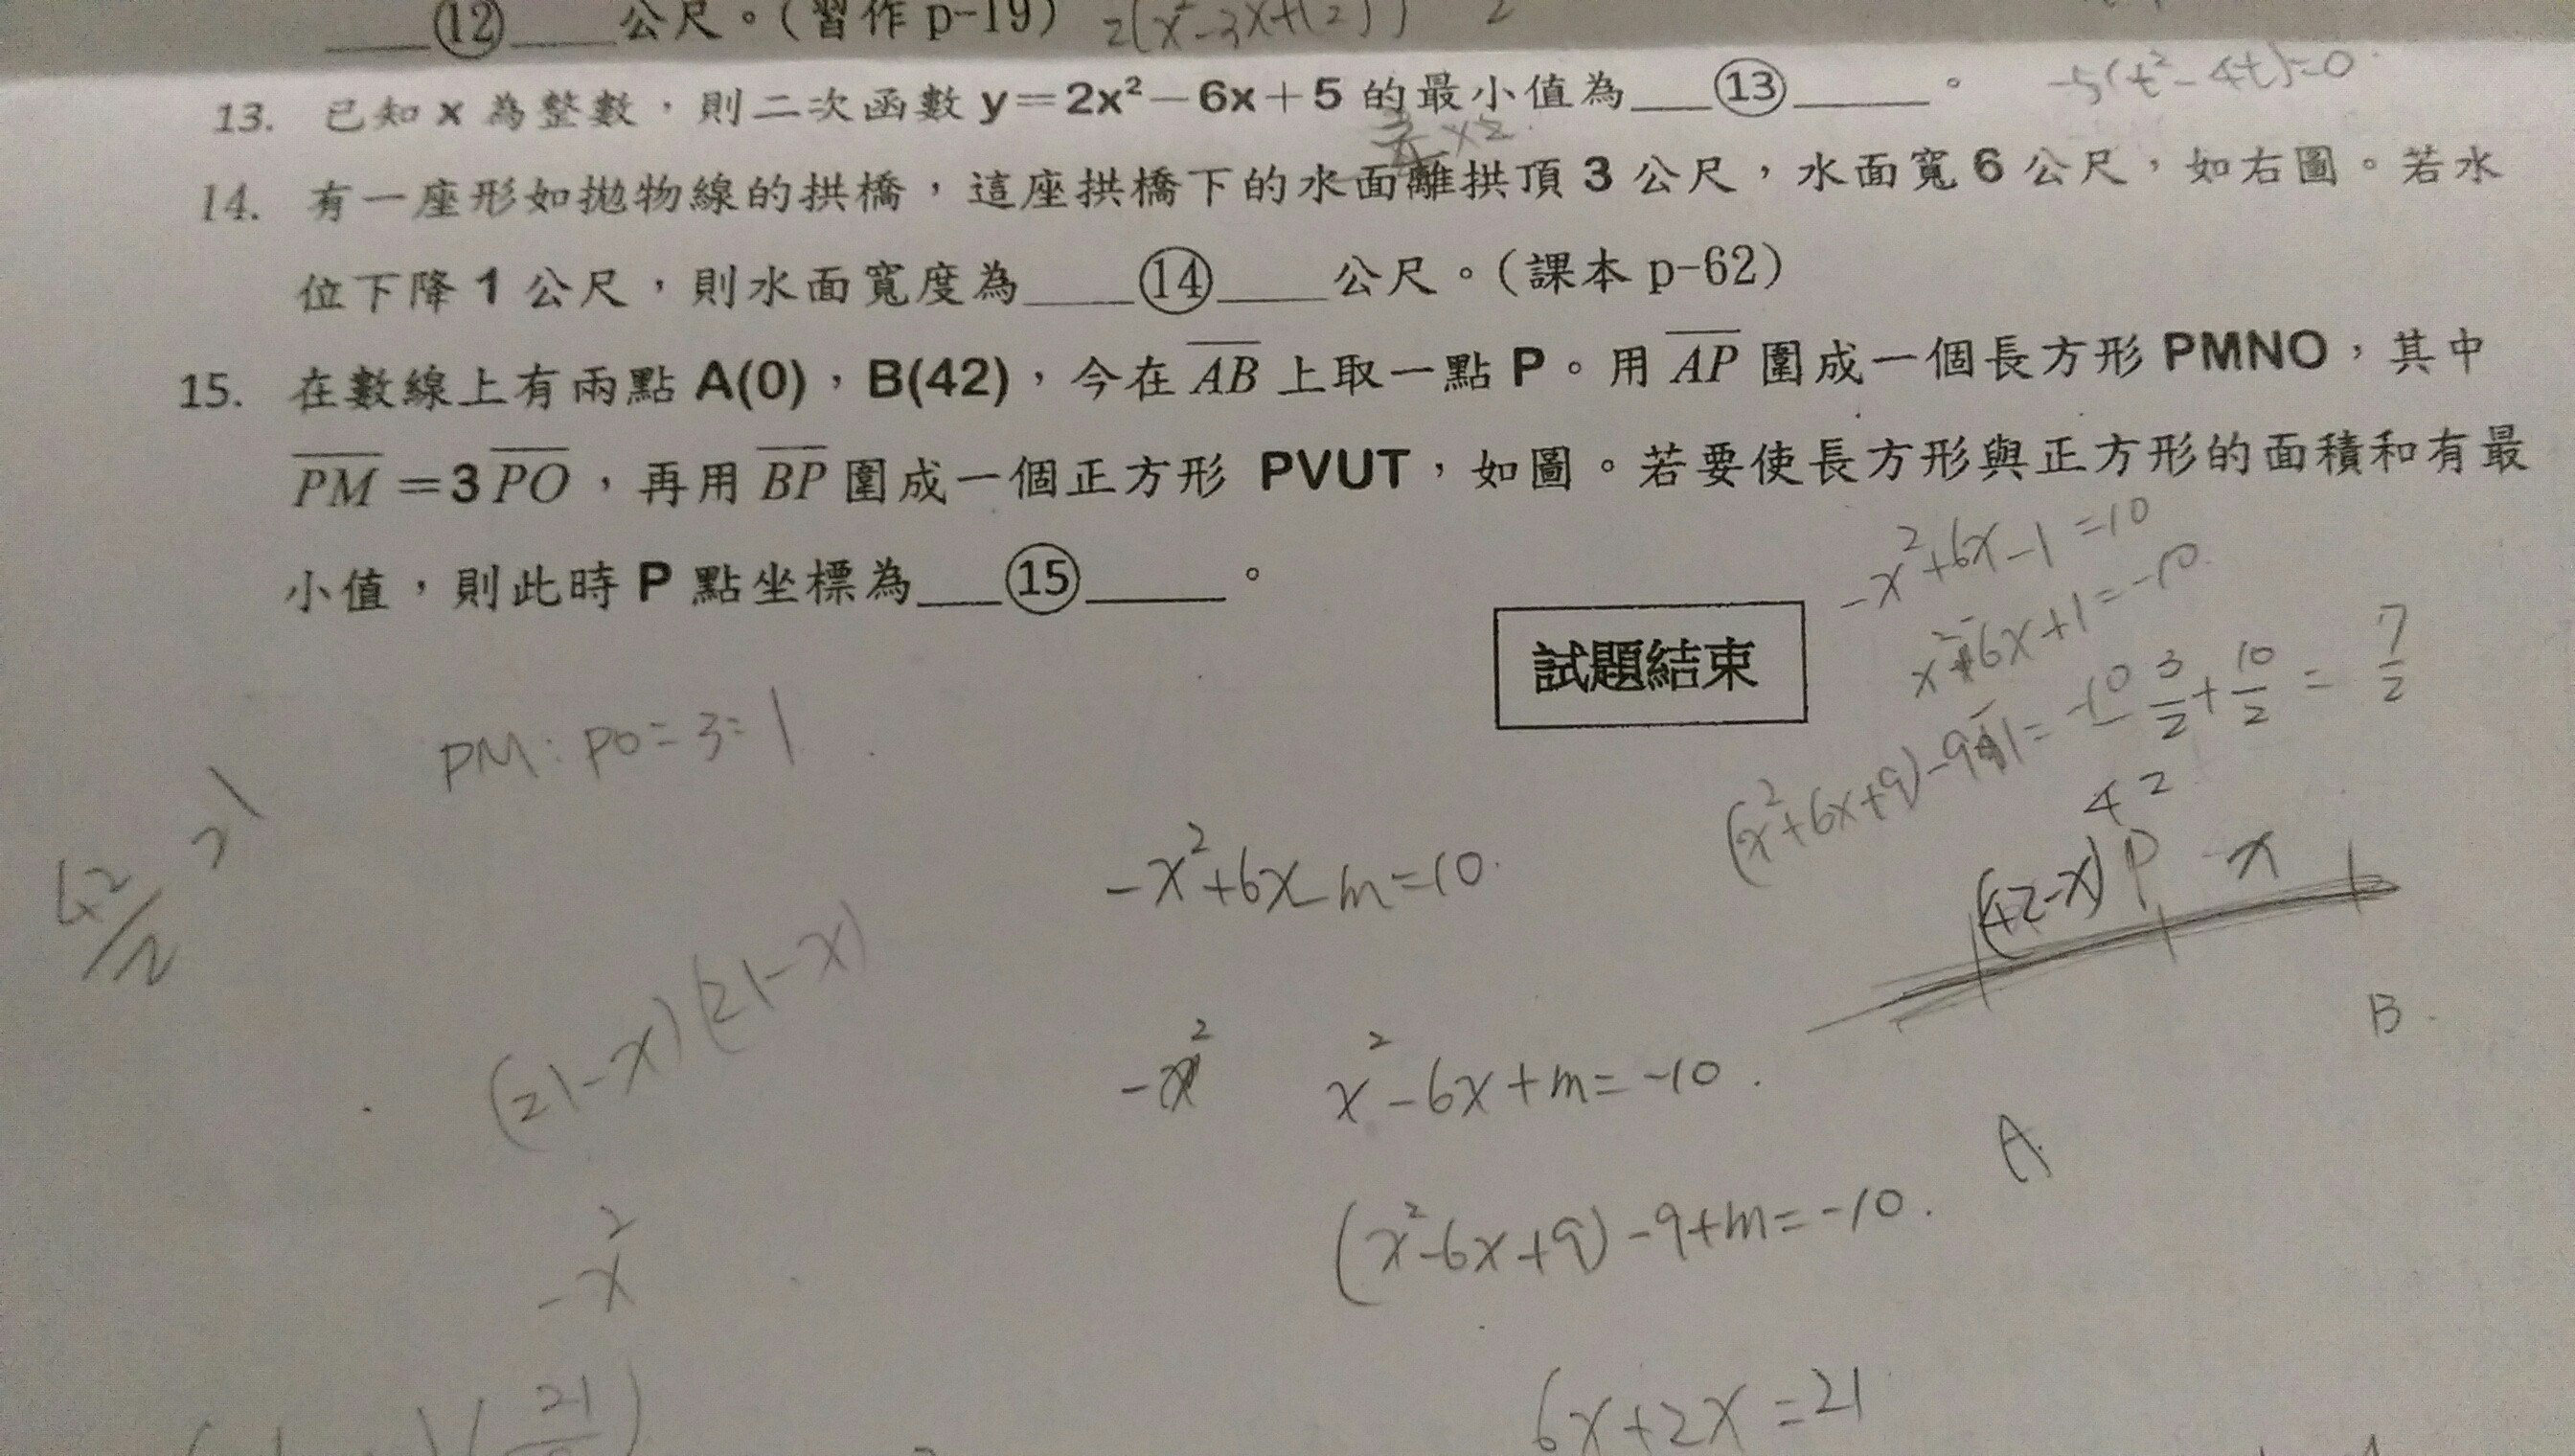 ⑫ 公尺。(習作 p-19) 2(x²-3x+(2))
13. 已知 x 為整數，則二次函數 y＝2x²－6x＋5 的最小值為 ⑬ 。
-5(t²-4t)=0
14. 有一座形如拋物線的拱橋，這座拱橋下的水面離拱頂 3 公尺，水面寬 6 公尺，如右圖。若水
位下降 1 公尺，則水面寬度為 ⑭ 公尺。(課本 p-62)
15. 在數線上有兩點 A(0)，B(42)，今在 AB 上取一點 P。用 AP 圍成一個長方形 PMNO，其中
PM＝3PO，再用 BP 圍成一個正方形 PVUT，如圖。若要使長方形與正方形的面積和有最
小值，則此時 P 點坐標為 ⑮ 。
試題結束
-x²+6x-1=10
x²-6x+1=-10
3/2+10/2=7/2
PM:PO=3=1
42/2 21
42
(42-x) P x
-x²+6x-m=10
B
(21-x)(21-x)
-x² x²-6x+m=-10
A
(x²-6x+9)-9+m=-10
-x²
6x+2x=21